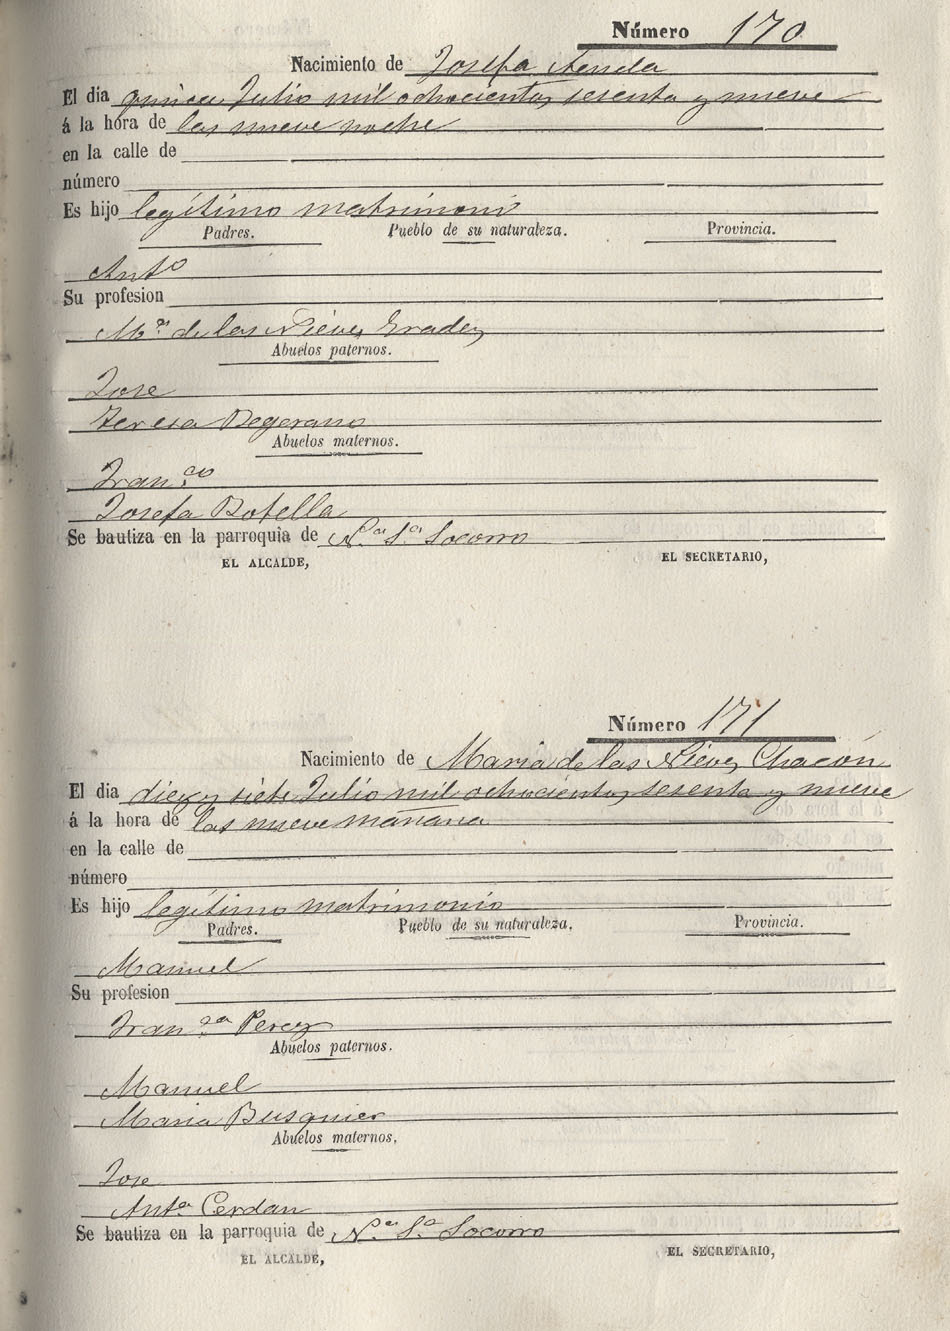 Número 170
Nacimiento de Josefa
El día quince Julio mil ochocientos sesenta y nueve
á la hora de las nueve noche
en la calle de
número
Es hijo legítimo matrimoni
Padres. Pueblo de su naturaleza. Provincia.
Antº
Su profesion
Mª de las Nieves Grades
Abuelos paternos.
Jose
Teresa Begerano
Abuelos maternos.
Franco
Josefa Botella
Se bautiza en la parroquia de Nª Sª Socorro
EL ALCALDE, EL SECRETARIO,
Número 171
Nacimiento de Maria de las Nieves Chacón
El dia diez y siete Julio mil ochocientos sesenta y nueve
á la hora de las nueve mañana
en la calle de
número
Es hijo legítimo matrimonio
Padres. Pueblo de su naturaleza. Provincia.
Manuel
Su profesion
Franca Perez
Abuelos paternos.
Manuel
Maria Busquier
Abuelos maternos.
Jose
Antª Cerdan
Se bautiza en la parroquia de Nª Sª Socorro
EL ALCALDE, EL SECRETARIO,